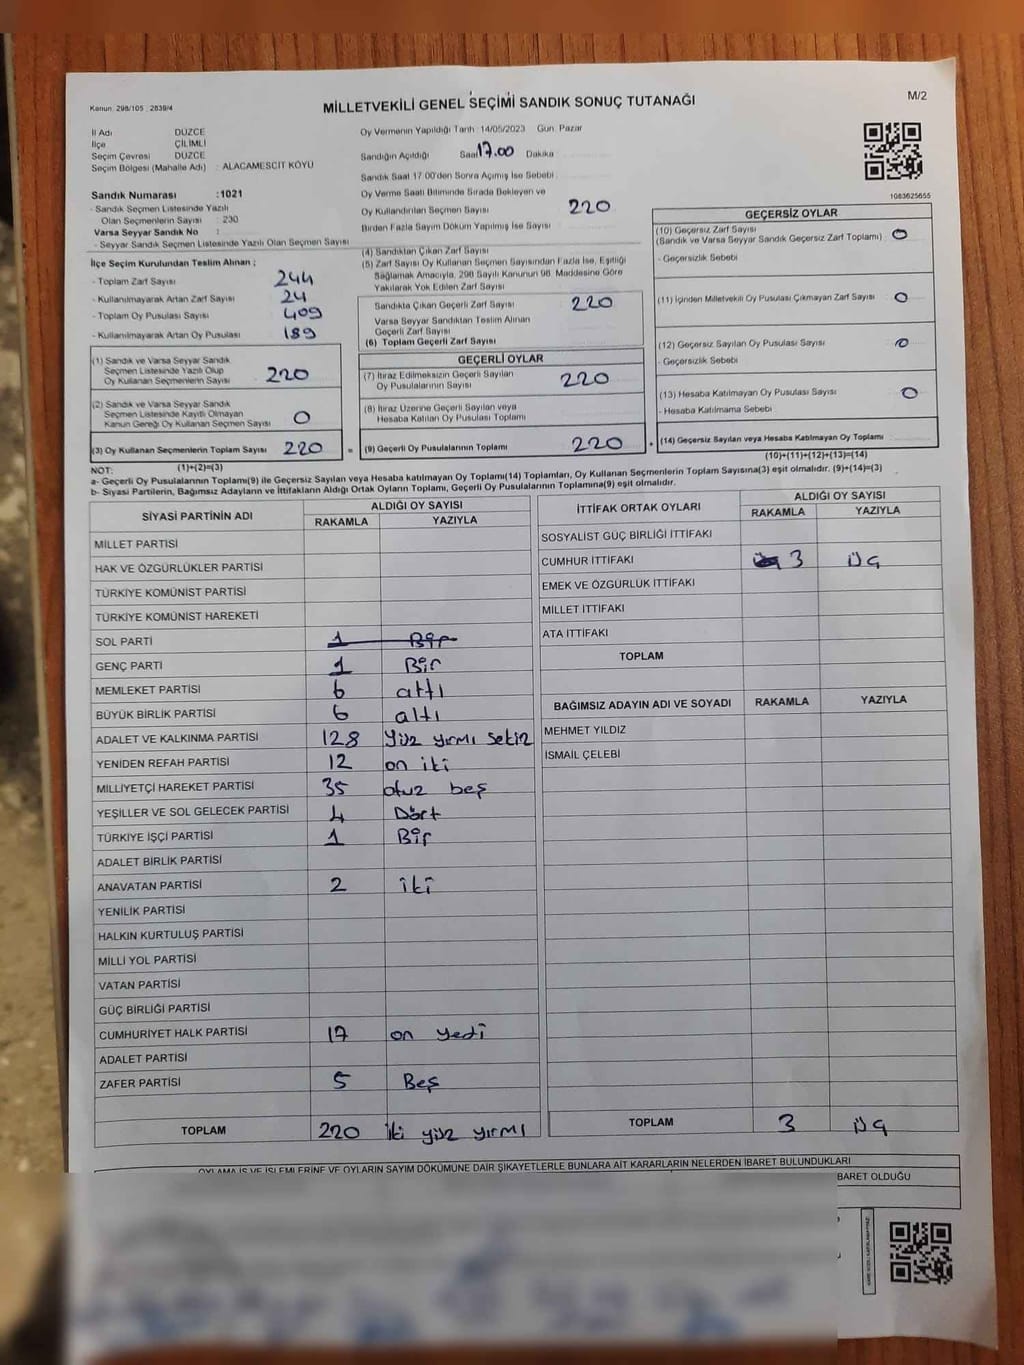 Kanun: 298/105 , 2839/4
MİLLETVEKİLİ GENEL SEÇİMİ SANDIK SONUÇ TUTANAĞI
M/2
İl Adı DÜZCE
İlçe ÇİLİMLİ
Seçim Çevresi DÜZCE
Seçim Bölgesi (Mahalle Adı) : ALACAMESCİT KÖYÜ
Sandık Numarası :1021
- Sandık Seçmen Listesinde Yazılı
Olan Seçmenlerin Sayısı : 230
Varsa Seyyar Sandık No :
- Seyyar Sandık Seçmen Listesinde Yazılı Olan Seçmen Sayısı
Oy Vermenin Yapıldığı Tarih : 14/05/2023 Gün: Pazar
Sandığın Açıldığı Saat 17.00 Dakika
Sandık Saat 17:00'den Sonra Açılmış İse Sebebi :
Oy Verme Saati Bitiminde Sırada Bekleyen ve
Oy Kullandırılan Seçmen Sayısı 220
Birden Fazla Sayım Döküm Yapılmış İse Sayısı
1083625655
İlçe Seçim Kurulundan Teslim Alınan ;
- Toplam Zarf Sayısı 244
- Kullanılmayarak Artan Zarf Sayısı 24
- Toplam Oy Pusulası Sayısı 409
- Kullanılmayarak Artan Oy Pusulası 189
(1) Sandık ve Varsa Seyyar Sandık
Seçmen Listesinde Yazılı Olup
Oy Kullanan Seçmenlerin Sayısı 220
(2) Sandık ve Varsa Seyyar Sandık
Seçmen Listesinde Kayıtlı Olmayan
Kanun Gereği Oy Kullanan Seçmen Sayısı 0
(3) Oy Kullanan Seçmenlerin Toplam Sayısı 220
(1)+(2)=(3)
(4) Sandıktan Çıkan Zarf Sayısı
(5) Zarf Sayısı Oy Kullanan Seçmen Sayısından Fazla İse, Eşitliği
Sağlamak Amacıyla, 298 Sayılı Kanunun 98. Maddesine Göre
Yakılarak Yok Edilen Zarf Sayısı
Sandıkta Çıkan Geçerli Zarf Sayısı 220
Varsa Seyyar Sandıktan Teslim Alınan
Geçerli Zarf Sayısı
(6) Toplam Geçerli Zarf Sayısı
GEÇERLİ OYLAR
(7) İtiraz Edilmeksizin Geçerli Sayılan
Oy Pusulalarının Sayısı 220
(8) İtiraz Üzerine Geçerli Sayılan veya
Hesaba Katılan Oy Pusulası Toplamı
= (9) Geçerli Oy Pusulalarının Toplamı 220
GEÇERSİZ OYLAR
(10) Geçersiz Zarf Sayısı
(Sandık ve Varsa Seyyar Sandık Geçersiz Zarf Toplamı) 0
- Geçersizlik Sebebi
(11) İçinden Milletvekili Oy Pusulası Çıkmayan Zarf Sayısı 0
(12) Geçersiz Sayılan Oy Pusulası Sayısı 0
- Geçersizlik Sebebi
(13) Hesaba Katılmayan Oy Pusulası Sayısı 0
- Hesaba Katılmama Sebebi
+ (14) Geçersiz Sayılan veya Hesaba Katılmayan Oy Toplamı
(10)+(11)+(12)+(13)=(14)
NOT:
a- Geçerli Oy Pusulalarının Toplamı(9) ile Geçersiz Sayılan veya Hesaba katılmayan Oy Toplamı(14) Toplamları, Oy Kullanan Seçmenlerin Toplam Sayısına(3) eşit olmalıdır. (9)+(14)=(3)
b- Siyasi Partilerin, Bağımsız Adayların ve İttifakların Aldığı Ortak Oyların Toplamı, Geçerli Oy Pusulalarının Toplamına(9) eşit olmalıdır.
SİYASİ PARTİNİN ADI ALDIĞI OY SAYISI
RAKAMLA YAZIYLA
MİLLET PARTİSİ
HAK VE ÖZGÜRLÜKLER PARTİSİ
TÜRKİYE KOMÜNİST PARTİSİ
TÜRKİYE KOMÜNİST HAREKETİ
SOL PARTİ 1 Bir
GENÇ PARTİ 1 Bir
MEMLEKET PARTİSİ 6 altı
BÜYÜK BİRLİK PARTİSİ 6 altı
ADALET VE KALKINMA PARTİSİ 128 Yüz yirmi sekiz
YENİDEN REFAH PARTİSİ 12 on iki
MİLLİYETÇİ HAREKET PARTİSİ 35 otuz beş
YEŞİLLER VE SOL GELECEK PARTİSİ 4 Dört
TÜRKİYE İŞÇİ PARTİSİ 1 Bir
ADALET BİRLİK PARTİSİ
ANAVATAN PARTİSİ 2 iki
YENİLİK PARTİSİ
HALKIN KURTULUŞ PARTİSİ
MİLLİ YOL PARTİSİ
VATAN PARTİSİ
GÜÇ BİRLİĞİ PARTİSİ
CUMHURİYET HALK PARTİSİ 17 on yedi
ADALET PARTİSİ
ZAFER PARTİSİ 5 Beş
TOPLAM 220 iki yüz yirmi
İTTİFAK ORTAK OYLARI ALDIĞI OY SAYISI
RAKAMLA YAZIYLA
SOSYALİST GÜÇ BİRLİĞİ İTTİFAKI
CUMHUR İTTİFAKI 3 üç
EMEK VE ÖZGÜRLÜK İTTİFAKI
MİLLET İTTİFAKI
ATA İTTİFAKI
TOPLAM
BAĞIMSIZ ADAYIN ADI VE SOYADI RAKAMLA YAZIYLA
MEHMET YILDIZ
İSMAİL ÇELEBİ
TOPLAM 3 üç
OYLAMA İŞ VE İŞLEMLERİNE VE OYLARIN SAYIM DÖKÜMÜNE DAİR ŞİKAYETLERLE BUNLARA AİT KARARLARIN NELERDEN İBARET BULUNDUKLARI
BARET OLDUĞU